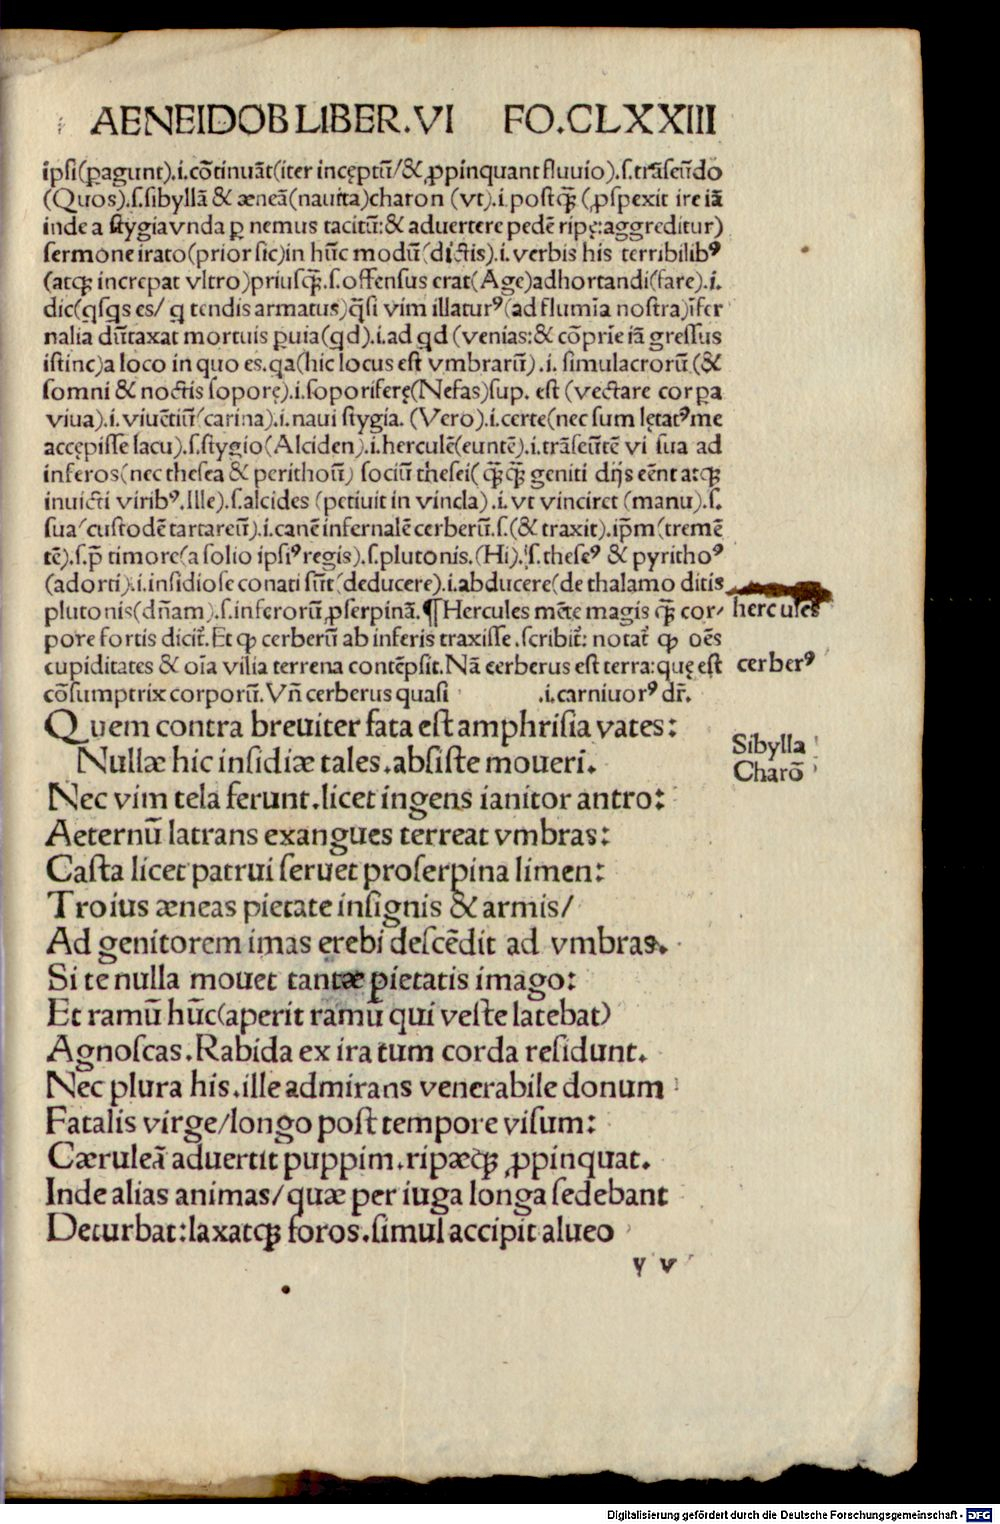 AENEIDOB LIBER.VI FO.CLXXIII
ip̄si(ꝑagunt).i.cōtinuāt(iter incęptū/&ꝓpinquant fluuio).ſ.trāſeūdo
(Quos).ſ.ſibyllā & æneā(nauita)charon (vt).i.poſtq̄ꝫ (ꝓſpexit ire iā
inde a ſtygiavnda ꝑ nemus tacitū:& aduertere pedē ripę:aggreditur)
ſermone irato(prior ſic)in hūc modū(dictis).i.verbis his terribilibꝰ
(atqꝫ increpat vltro)priuſq̄ꝫ.ſ.offenſus erat(Age)adhortandi(fare).i.
dic(qſqs es/ q tendis armatus)q̄ſi vim illaturꝰ(ad flumīa noſtra)īfer
nalia dūtaxat mortuis ꝑuia(qd).i.ad qd (venias:& cōprie iā greſſus
iſtinc)a loco in quo es.qa(hic locus eſt vmbrarū).i. ſimulacrorū (&
ſomni & noctis ſoporę).i.ſoporiferę(Nefas)ſup. eſt (vectare corꝑa
viua).i.viuētiū(carina).i.naui ſtygia. (Vero).i.certe(nec ſum lętatꝰme
accępiſſe lacu).ſ.ſtygio(Alciden).i.herculē(euntē).i.trāſeūtē vi ſua ad
inferos(nec theſea & perithoū) ſociū theſei( q̄ꝫq̄ꝫ geniti dijs eēnt a:qꝫ
inuicti viribꝰ.Ille).ſ.alcides (petiuit in vincla).i.vt vinciret (manu).ſ.
ſua(cuſtodē tartareū).i.canē infernalē cerberū.ſ.(& traxit).ip̄m(tremē
tē).ſ.p̄ timore(a ſolio ipſiꝰregis).ſ.plutonis.(Hi).ſ.theſeꝰ & pyrithoꝰ
(adorti).i.inſidioſe conati ſūt(deducere).i.abducere(de thalamo ditis
plutonis(dn̄am).ſ.inferorū ꝓſerpinā.¶Hercules mēte magis q̄ꝫ cor/ hercules
pore fortis dicit̄.Et ꝙ cerberū ab inferis traxiſſe.ſcribit̄: notat̄ ꝙ oēs
cupiditates & oīa vilia terrena contēpſit.Nā cerberus eſt terra:quę eſt cerberꝰ
cōſumptrix corporū.Vn̄ cerberus quaſi .i.carniuorꝰ dr̄.
Quem contra breuiter fata eſt amphriſia vates:
Nullæ hic inſidiæ tales.abſiſte moueri. Sibylla
Charō
Nec vim tela ferunt.licet ingens ianitor antro:
Aeternū latrans exangues terreat vmbras:
Caſta licet patrui ſeruet proſerpina limen:
Troius æneas pietate inſignis & armis/
Ad genitorem imas erebi deſcēdit ad vmbras.
Si te nulla mouet tantæ pietatis imago:
Et ramū hūc(aperit ramū qui veſte latebat)
Agnoſcas.Rabida ex ira tum corda reſidunt.
Nec plura his.ille admirans venerabile donum
Fatalis virge/longo poſt tempore viſum:
Cæruleā aduertit puppim.ripæqꝫ ꝓpinquat.
Inde alias animas/quæ per iuga longa ſedebant
Deturbat:laxatqꝫ foros.ſimul accipit alueo
y v
Digitalisierung gefördert durch die Deutsche Forschungsgemeinschaft - DFG